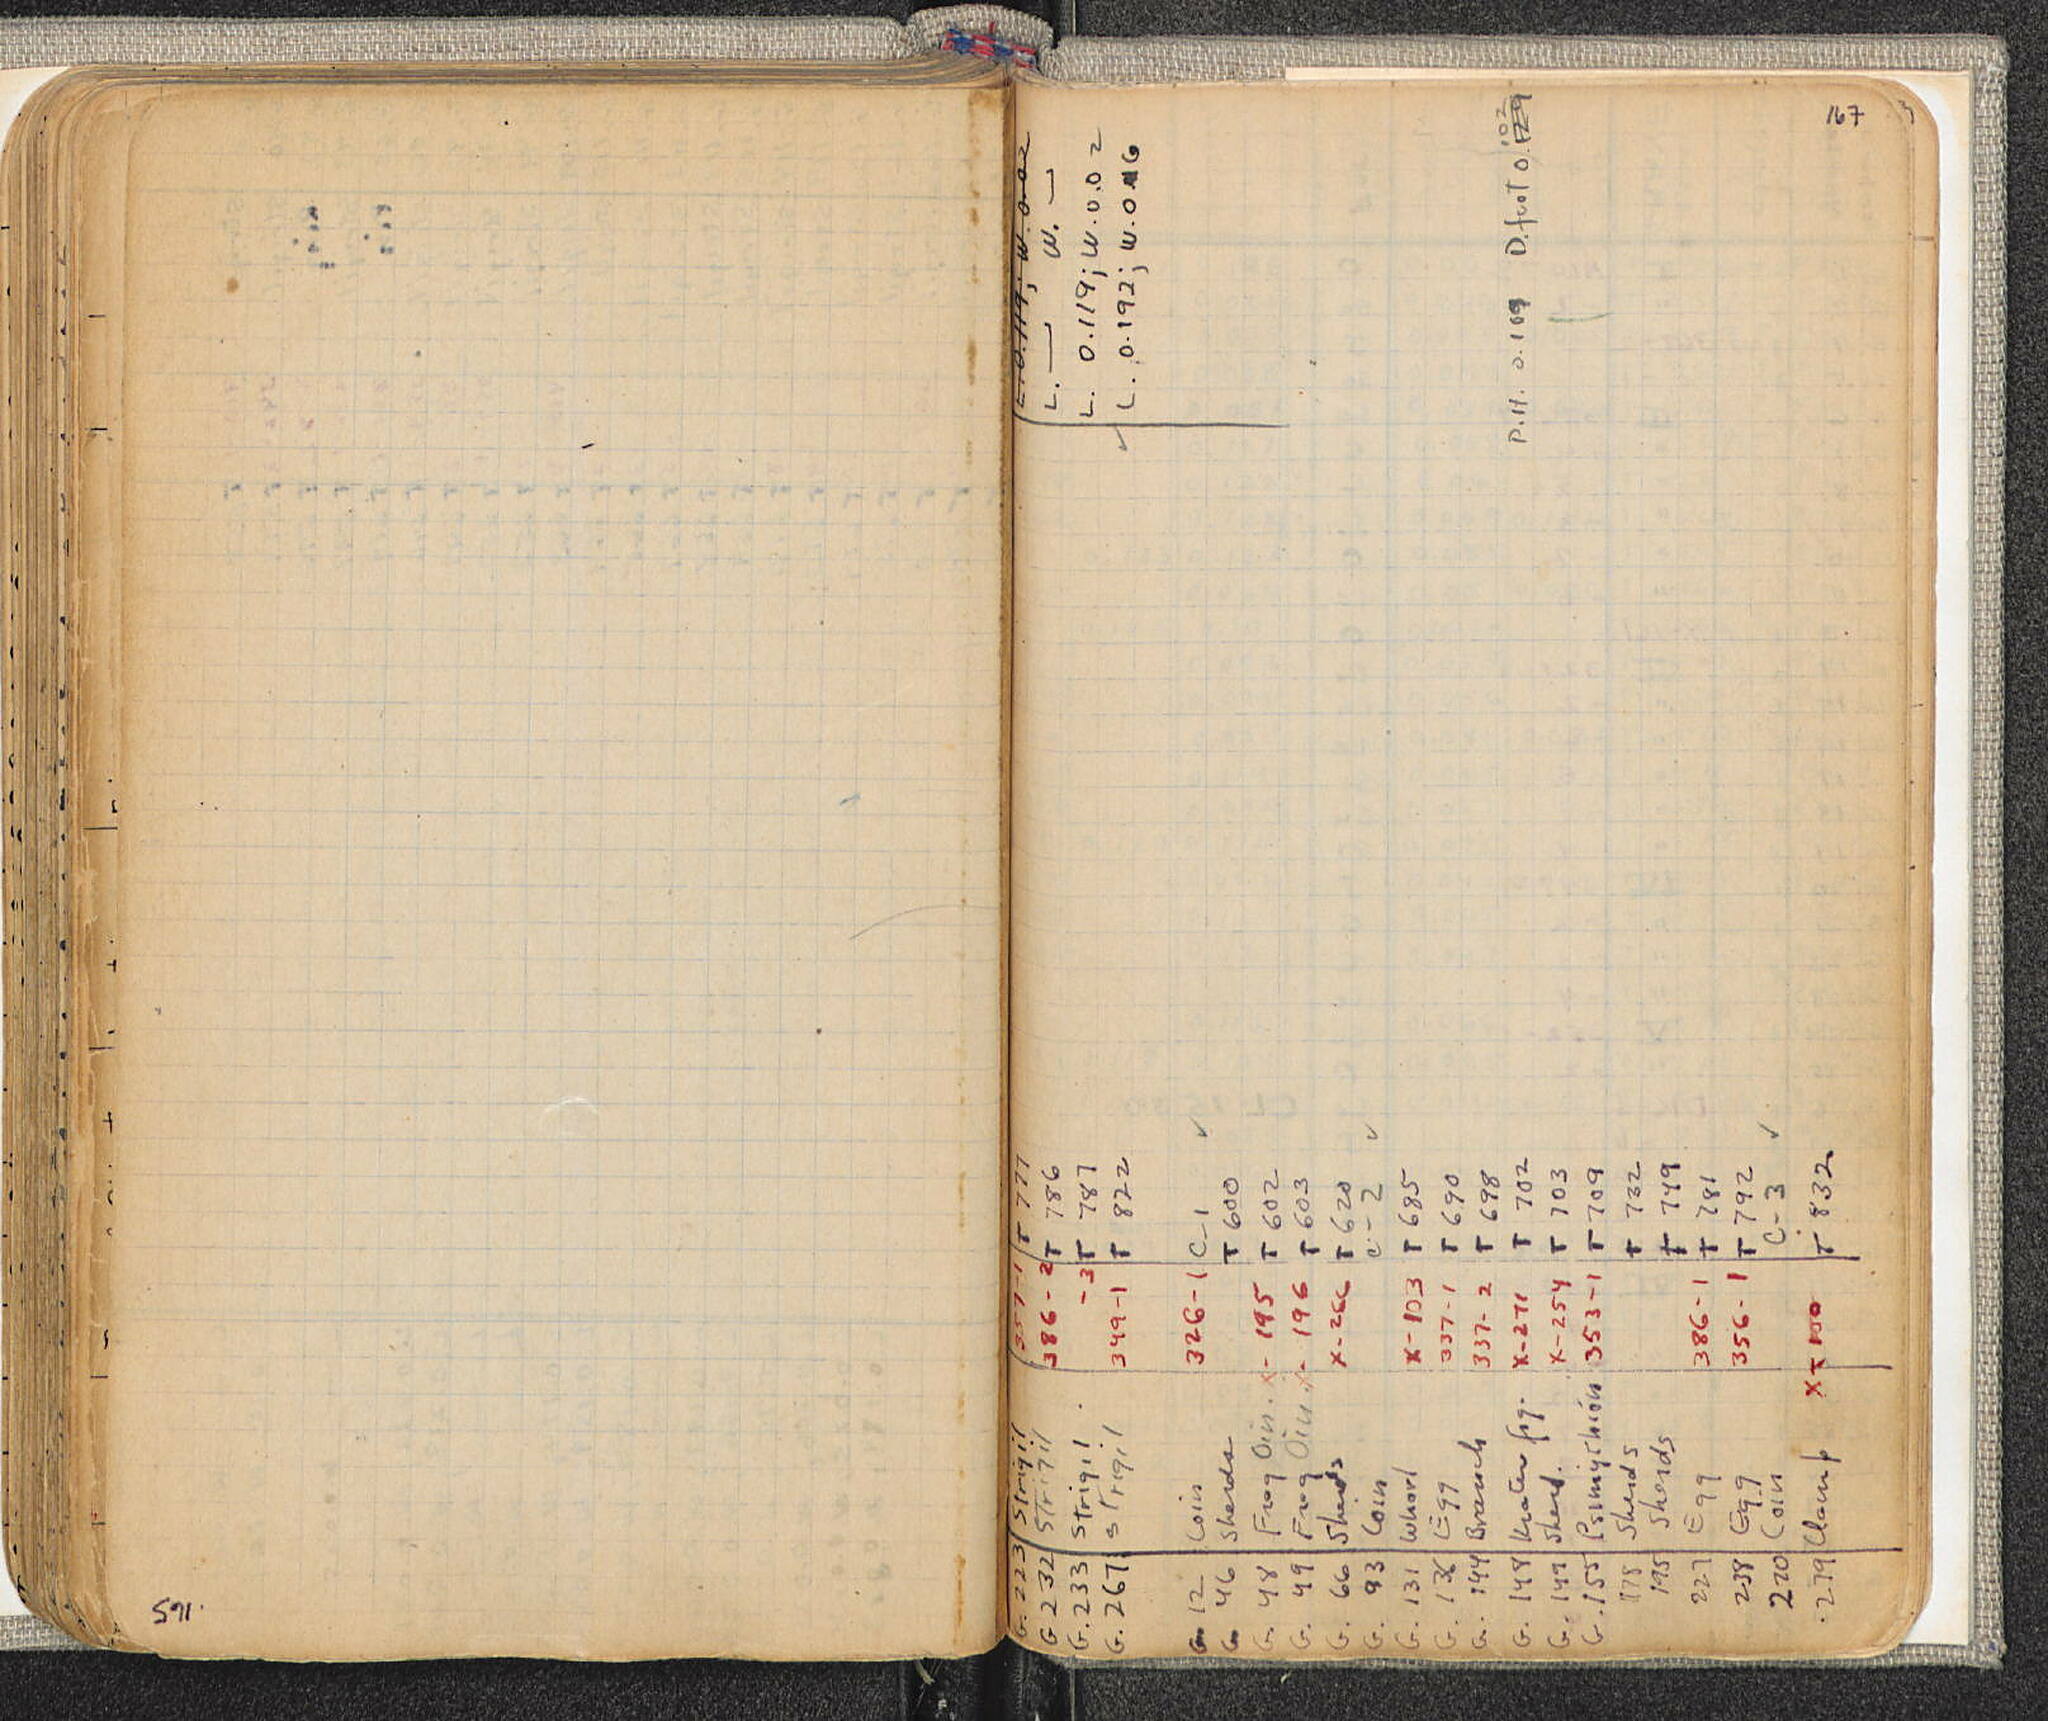 167
G. 223 Strigil 357-1 T 777 L. 0.119; W. 0.02
G. 232 Strigil 386-2 T 786 L. — ; W. —
G. 233 Strigil -3 T 787 L. 0.119; W. 0.02
G. 267 Strigil 349-1 T 822 ✓ L. 0.192; W. 0.016
G. 12 Coin 326-1 C-1 ✓
G. 46 Sherds T 600
G. 48 Frog Oin. X-195 T 602
G. 49 Frog Oin. X-196 T 603
G. 66 Sherds X-266 T 620
G. 93 Coin C-2 ✓
G. 131 Whorl X-103 T 685
G. 136 Egg 337-1 T 690
G. 144 Branch 337-2 T 698
G. 148 Krater frg. X-271 T 702 P.H. 0.109 D. foot 0.102
G. 149 Sherd. X-254 T 703
G. 155 Psimythion 353-1 T 709
178 Sherds T 732
195 Sherds T 749
227 Egg 386-1 T 781
238 Egg 356-1 T 792
270 Coin C-3 ✓
279 Clamp X-100 T 832